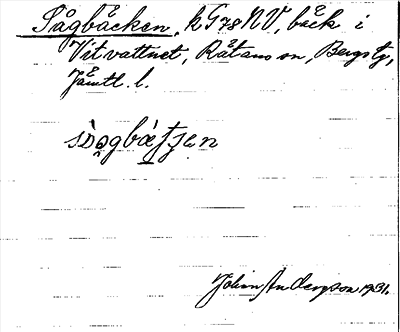 Sågbäcken, kG78NV, bäck i
Vitvattnet, Rätans sn, Bergs tg,
Jämtl. l.
Johan Anderson 1931.